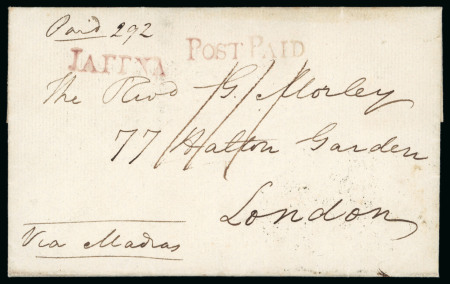 Paid 292
JAFFNA POST PAID
The Revd G. Morley
77 Hatton Garden
London
Via Madras